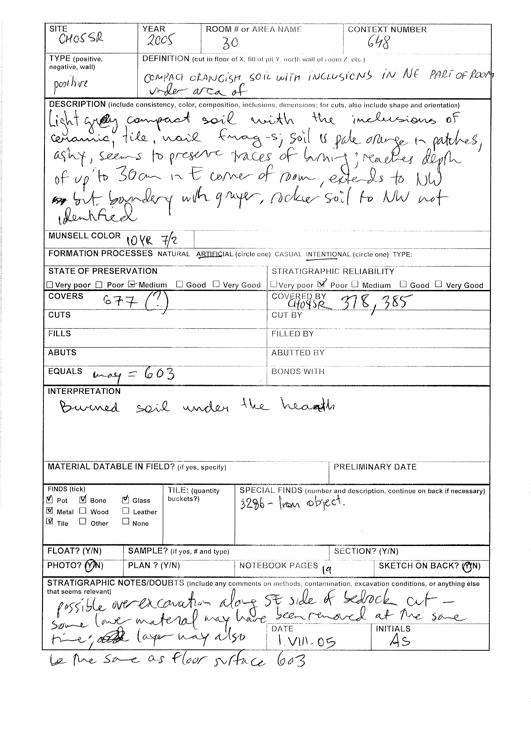 SITE YEAR ROOM # or AREA NAME CONTEXT NUMBER
CHO5SR 2005 30 648
TYPE (positive, negative, wall) DEFINITION (cut in floor of X, fill of pit Y, north wall of room Z, etc.)
positive COMPACT ORANGISH SOIL WITH INCLUSIONS IN NE PART OF ROOM
under area of
DESCRIPTION (include consistency, color, composition, inclusions, dimensions; for cuts, also include shape and orientation)
Light grey compact soil with the inclusions of
ceramic, tile, nail frag-s; soil is pale orange in patches,
ashy, seems to preserve traces of burning; reaches depth
of up to 30cm in E corner of room, extends to NW
but boundery with grayer, rockier soil to NW not
identified
MUNSELL COLOR 10YR 7/2
FORMATION PROCESSES NATURAL ARTIFICIAL (circle one) CASUAL INTENTIONAL (circle one) TYPE:
STATE OF PRESERVATION STRATIGRAPHIC RELIABILITY
Very poor Poor Medium Good Very Good Very poor Poor Medium Good Very Good
COVERS 677 (?) COVERED BY CHO4SR 378, 385
CUTS CUT BY
FILLS FILLED BY
ABUTS ABUTTED BY
EQUALS may = 603 BONDS WITH
INTERPRETATION
Burned soil under the hearth
MATERIAL DATABLE IN FIELD? (if yes, specify) PRELIMINARY DATE
FINDS (tick) TILE: (quantity buckets?) SPECIAL FINDS (number and description, continue on back if necessary)
Pot Bone Glass 3286 - Iron object.
Metal Wood Leather
Tile Other None
FLOAT? (Y/N) SAMPLE? (if yes, # and type) SECTION? (Y/N)
PHOTO? (Y/N) PLAN ? (Y/N) NOTEBOOK PAGES 19 SKETCH ON BACK? (Y/N)
STRATIGRAPHIC NOTES/DOUBTS (include any comments on methods, contamination, excavation conditions, or anything else
that seems relevant)
possible overexcavation along SE side of bedrock cut –
some lower material may have been removed at the same
time; layer may also
DATE INITIALS
1.VIII.05 AS
be the same as floor surface 603